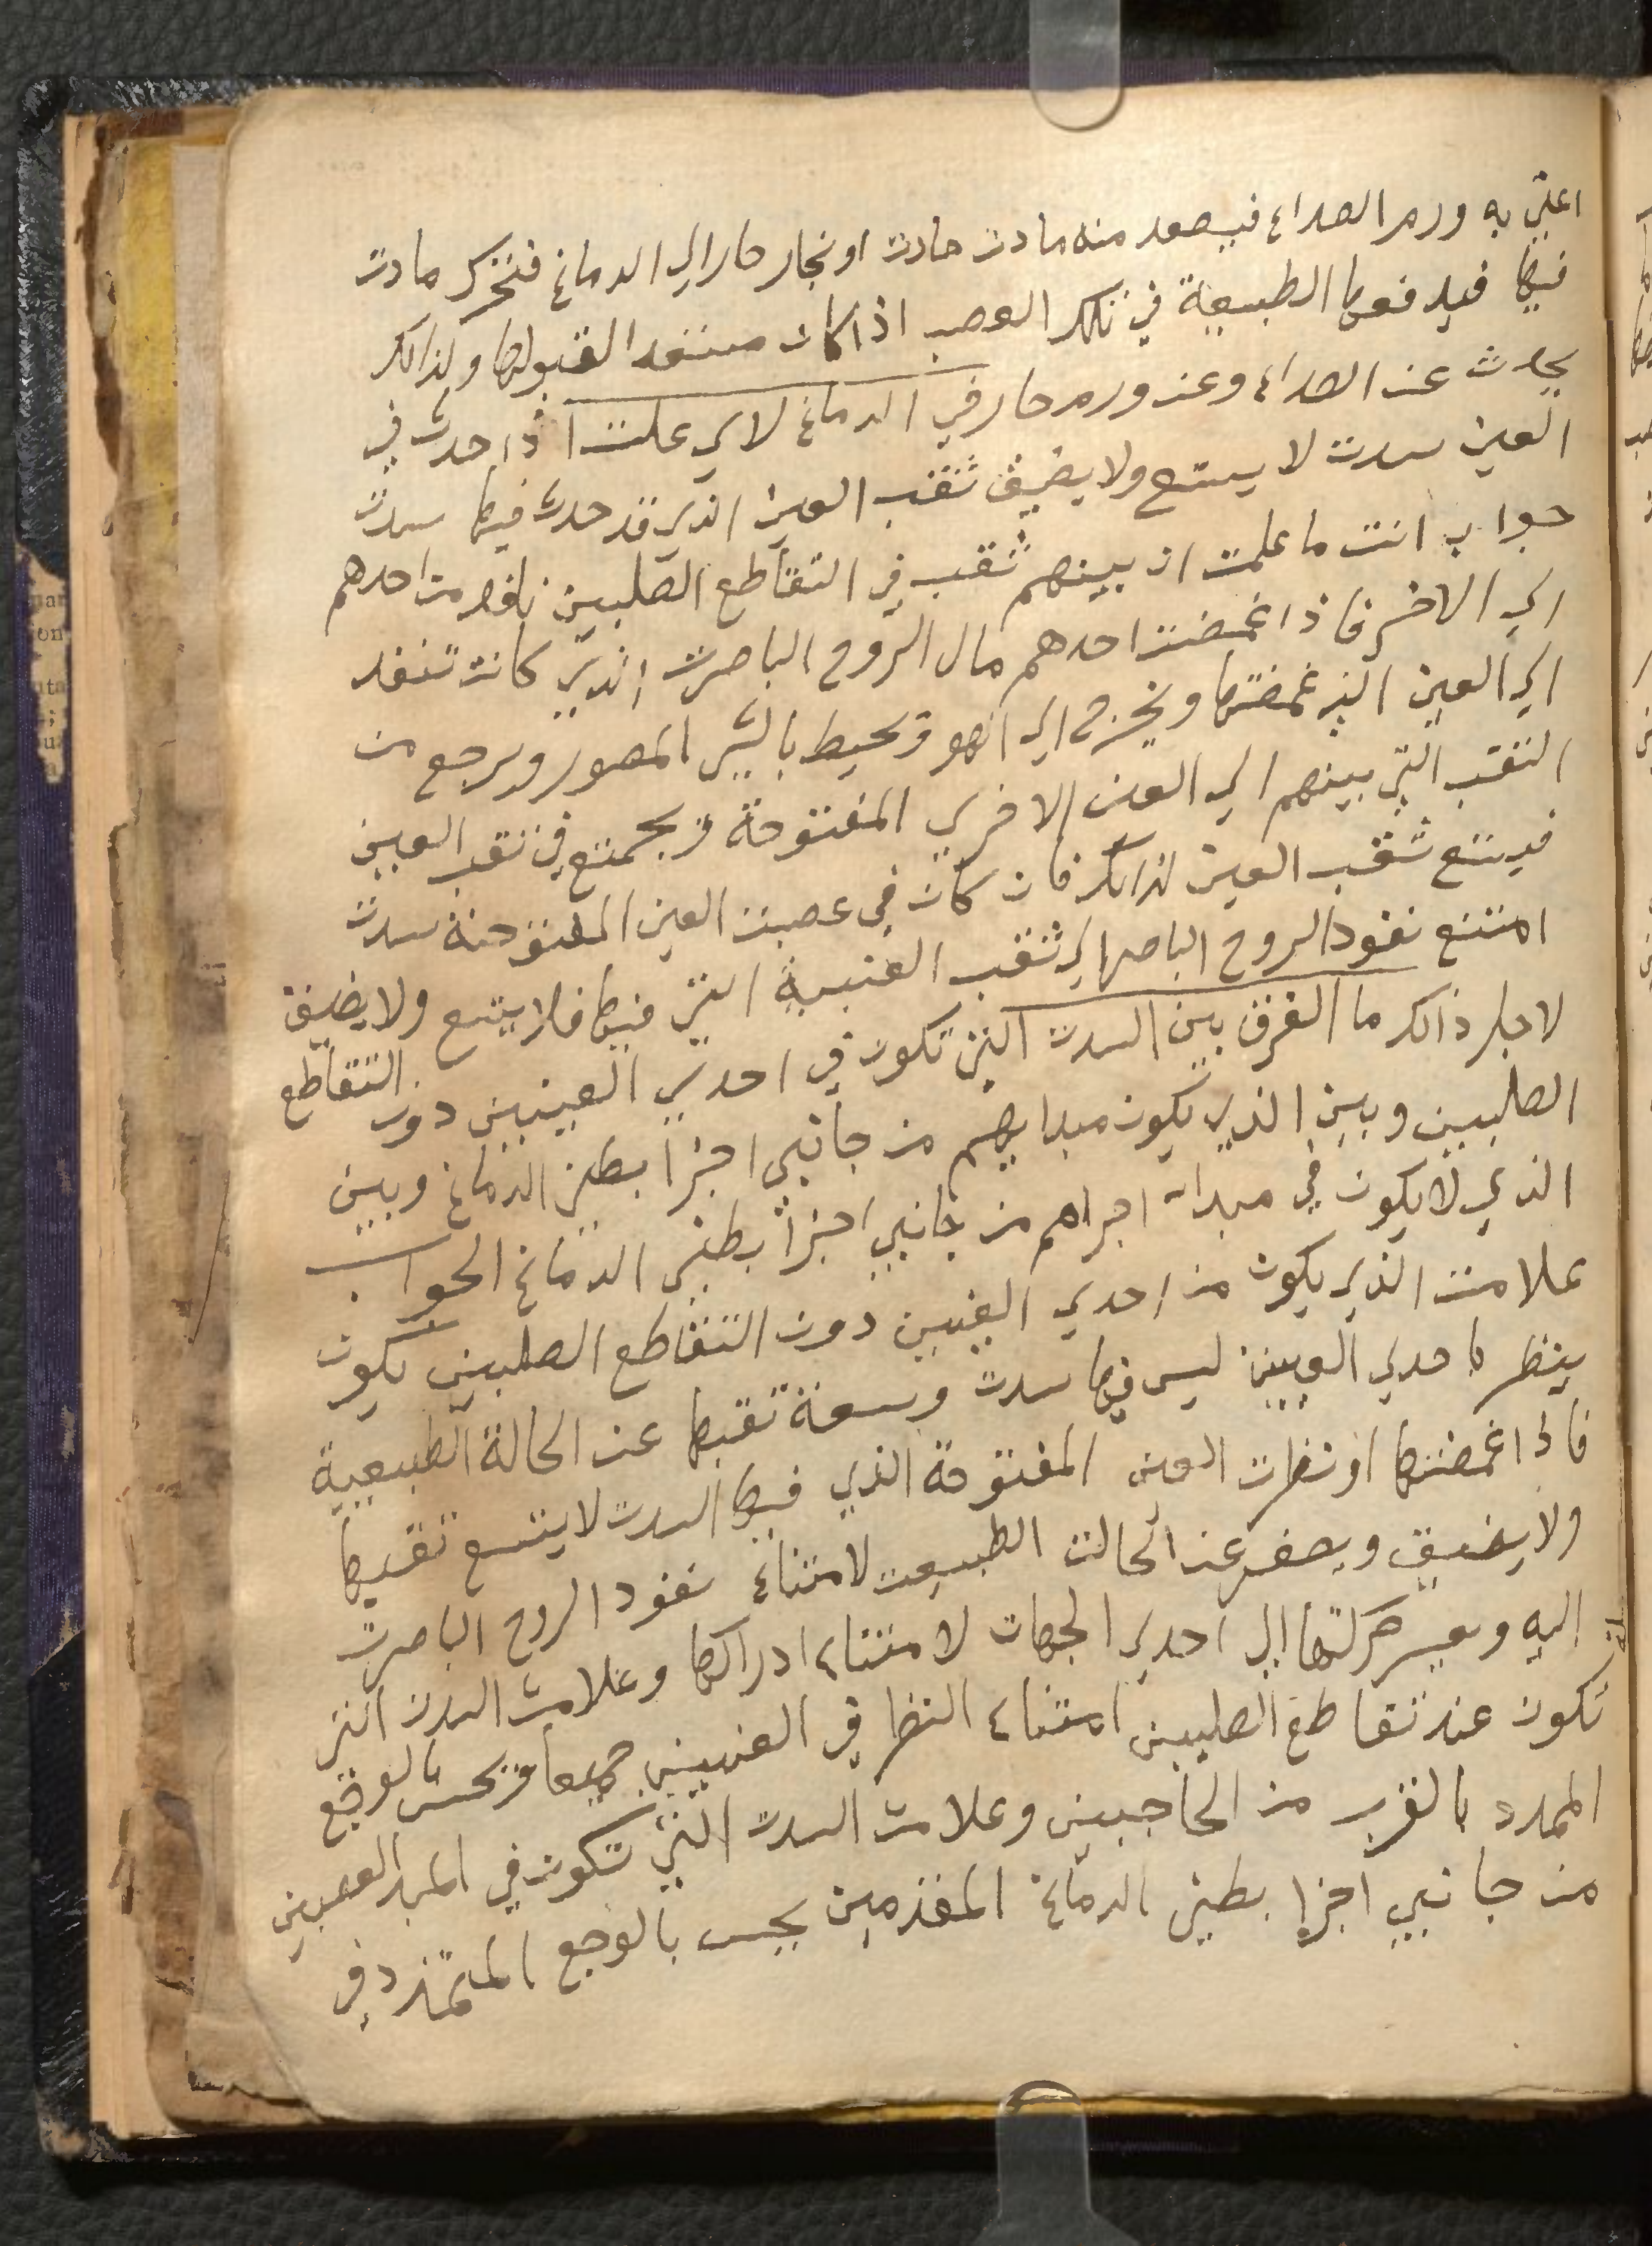 اعلي به ورم الصداع فيصعد منه مادت حادت او بخار حار الي الدماغ فتتحرك مادت
فيها فيدفعها الطبيعة في تلك العصب اذا كان مستعد القبولها ولذالك
يحدث عن الصداع وعن ورم حار في الدماغ لاي علت اذا حدث في
العين سدت لا يتسع ولا يضيق ثقب العين الذي قد حدث فيها سدت
جواب انت ما علمت ان بينهم ثقب في التقاطع الصلبين نافد من احدهم
الي الاخر فاذا غمضت احدهم مال الروح الباصرت الذي كانت تنفد
الي العين الذي غمضتها ويخرج الي الهو ويحيط بالشي المصور ويرجع من
الثقب التي بينهم الي العين الاخري المفتوحة ويجمتع في ثقب العين
فيتسع ثقب العين لذالك فان كان في عصبت العين المفتوحة سدت
امتنع نفود الروح الباصر الي ثقب العنبية التي فيها فلا يتسع ولا يضيق
لاجل ذالك ما الفرق بين السدت التي تكون في احدي العينين دون التقاطع
الصلبين وبين الذي يكون مبدايهم من جانبي اجزا بطني الدماغ وبين
الذي لا يكون في مبدا اجراهم من جانبي اجزا بطني الدماغ الجواب
علامت الذي يكون من احدي العينين دون التقاطع الصلبين يكون
ينظر باحدي العينين ليس فيها سدت وسعة ثقبها عن الحالة الطبيعية
فاذا غمضتها او نظرت العين المفتوحة الذي فيها السدت لا يتسع ثقبها
ولا يضيق ويصغر عن الحالت الطبيعت لامتناع نفود الروح الباصرت
اليه ويعسر حركتها الي احدي الجهات لامتناع ادراكها وعلامت السدت التي
تكون عند تقاطع الصلبين امتناع النظر في العينين جميعا ويحس بالوجع
الممدد بالقرب من الحاجبين وعلامت السدت التي تكون في المبد العصبين
من جانبي اجزا بطني الدماغ المقدمين يحس بالوجع المتمدد في